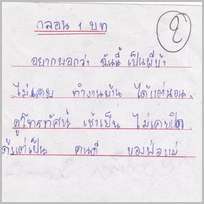 กลอน 1 บท
อยากบอกว่า ฉันนี้ เป็นผีบ้า
ไม่เคย ทำงานบ้าน ได้แต่นอน
ดูโทรทัศน์ เช้าเย็น ไม่เคยปิด
ตั้งแต่เป็น คนดี ของพ่อแม่